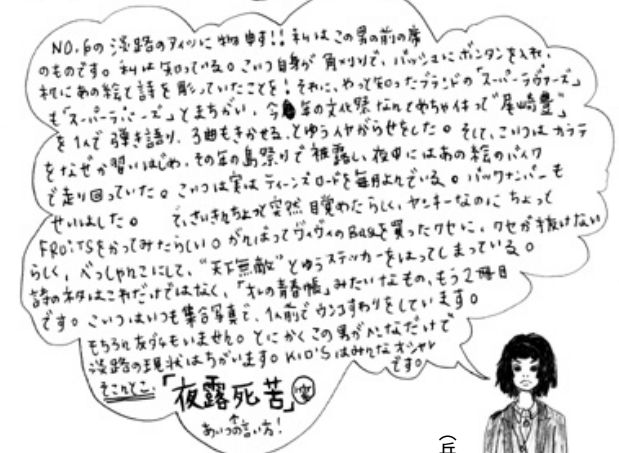 NO.6の淡路のアイツに物申す!! 私はこの男の前の席
のものです。私は知っている。こいつ自身が角刈りで、バッシュにボンタンを入れ、
机にあの絵と詩を彫っていたことを! それに、やっと知ったブランドの「スーパーラヴァーズ」
も「スーパーラバーズ」とまちがい、今年の文化祭なんてめちゃ仕って"尾崎豊"
を1人で弾き語り、3曲もきかせる、とゆうイヤがらせをした。そして、こいつはカラテ
をなぜか習いはじめ、その年の島祭りで披露し、夜中にはあの絵のバイク
で走り回っていた。こいつは実はティーンズロードを毎月よんでいる。バックナンバーも
せいはした。 で、さいきんちょっと突然目覚めたらしく、ヤンキーなのにちょっと
FRUiTSをかってみたらしい。がんばってヴィヴィのBAGを買ったクセに、クセが抜けない
らしく、ぺっしゃんこにして、"天下無敵"とゆうステッカーをはってしまっている。
詩のネタはこれだけではなく、「オレの青春帳」みたいなもの、もう2冊目
です。こいつはいつも集合写真で、1人前でウンコすわりをしています。
もちろん友ダチもいません。とにかくこの男がへんなだけで
淡路の現状はちがいます。KID'Sはみんなオシャレ
です。
そこんとこ、「夜露死苦」
あいつの言い方!
(兵